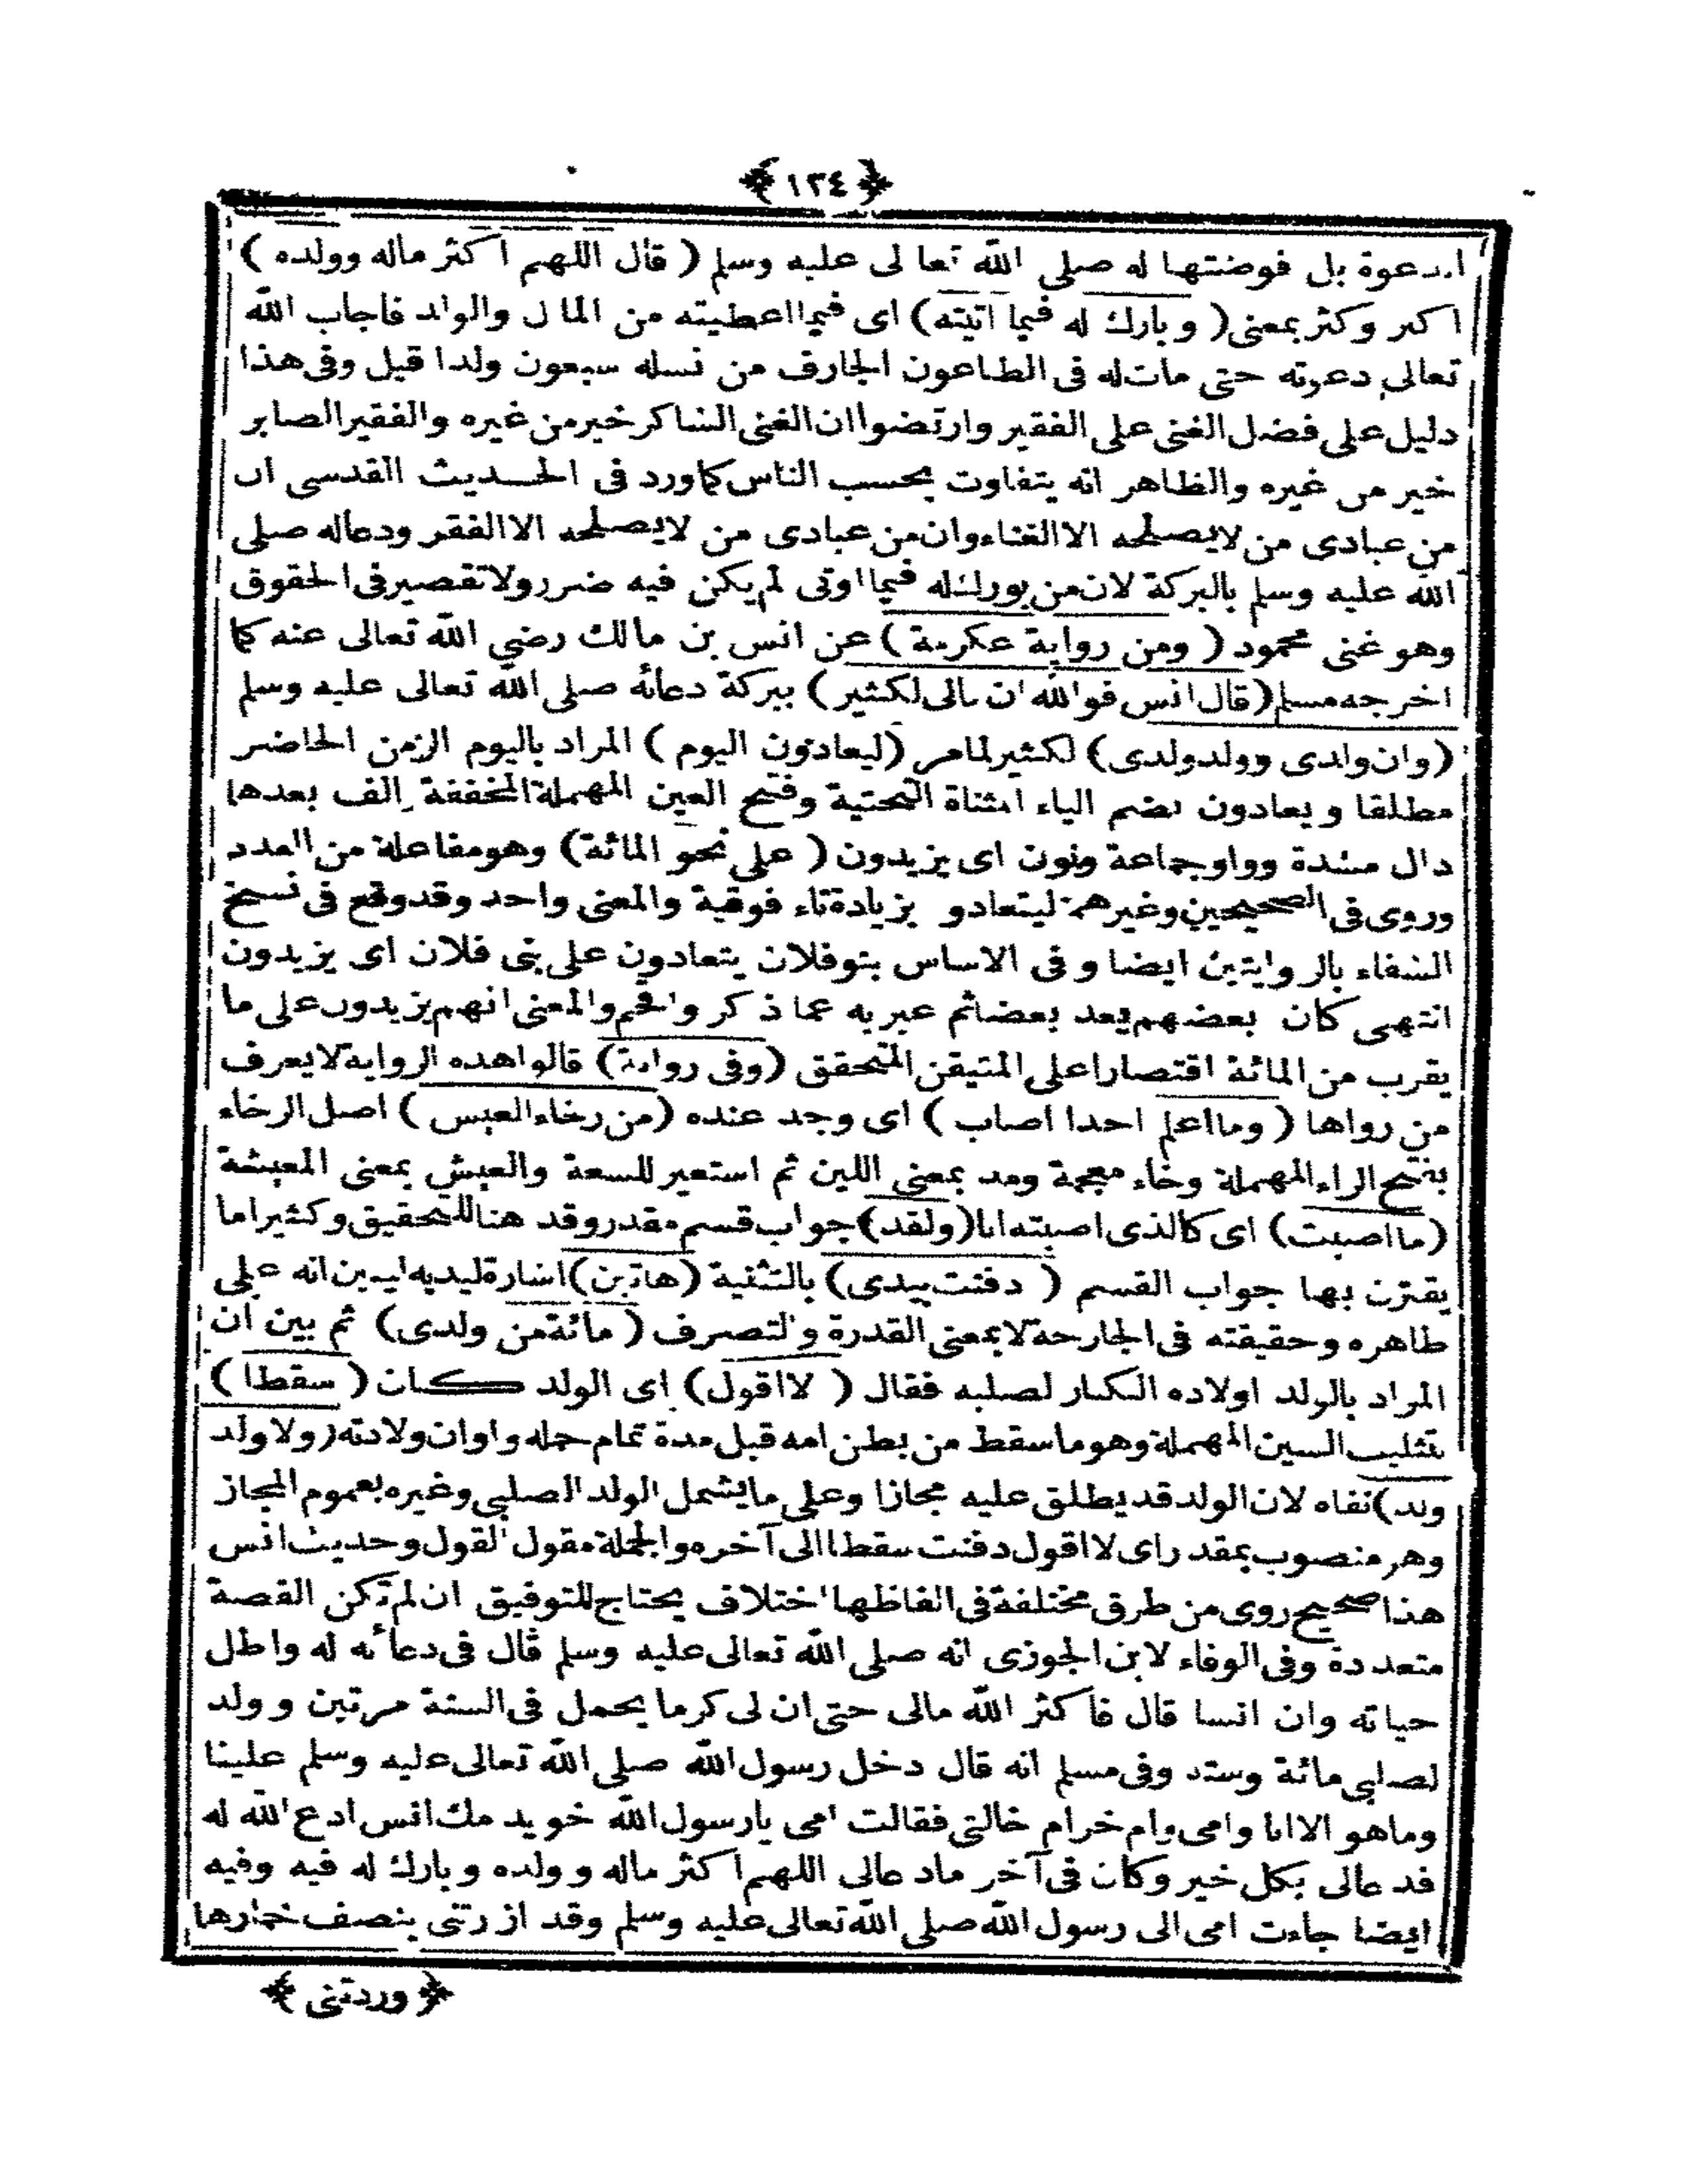 ﴿ ١٣٤ ﴾
الدعوة بل فوضتها له صلى الله تعالى عليه وسلم ( قال اللهم اكثر ماله وولده )
اكبر وكثر بمعنى ( وبارك له فيما اتيته ) اى فيما اعطيته من المال والولد فاجاب الله
تعالى دعوته حتى مات له فى الطاعون الجارف من نسله سبعون ولدا قيل وفى هذا
دليل على فضل الغنى على الفقير وارتضوا ان الغنى الشاكر خير من غيره والفقير الصابر
خير من غيره والظاهر انه يتفاوت بحسب الناس كما ورد فى الحديث القدسى ان
من عبادى من لا يصلحه الا الغناء وان من عبادى من لا يصلحه الا الفقر ودعاله صلى
الله عليه وسلم بالبركة لان من بورك له فيما اوتى لم يكن فيه ضرر ولا تقصير فى الحقوق
وهو غنى محمود ( ومن رواية عكرمة ) عن انس بن مالك رضى الله تعالى عنه كما
اخرجه مسلم ( قال انس فوالله ان مالى لكثير ) ببركة دعائه صلى الله تعالى عليه وسلم
( وان ولدى وولد ولدى ) لكثير لمامر ( ليعادون اليوم ) المراد باليوم الزمن الحاضر
مطلقا ويعادون بضم الياء المثناة التحتية وفتح العين المهملة المخففة والف بعدها
دال مشددة وواو جماعة ونون اى يزيدون ( على نحو المائة ) وهو مفاعلة من العدد
وروى فى الصحيحين وغيرهما ليتعادو بزيادة تاء فوقية والمعنى واحد وقد وقع فى نسخ
الشفاء بالروايتين ايضا وفى الاساس بنو فلان يتعادون على بنى فلان اى يزيدون
انتهى كان بعضهم يعد بعضا ثم عبر به عما ذكر والمعنى انهم يزيدون على ما
يقرب من المائة اقتصارا على المتيقن المتحقق ( وفى رواية ) قالوا هذه الرواية لا يعرف
من رواها ( وما اعلم احدا اصاب ) اى وجد عنده ( من رخاء العيش ) اصل الرخاء
بفتح الراء المهملة وخاء معجمة ومد بمعنى اللين ثم استعير للسعة والعيش بمعنى المعيشة
( ما اصبت ) اى كالذى اصبته انا ( ولقد ) جواب قسم مقدر وقد هنا للتحقيق وكثيرا ما
يقترن بها جواب القسم ( دفنت بيدى ) بالتثنية ( هاتين ) اشارة ليديه ليبين انه على
ظاهره وحقيقته فى الجارحة لا بمعنى القدرة والتصرف ( مائة من ولدى ) ثم بين ان
المراد بالولد اولاده الكبار لصلبه فقال ( لا اقول ) اى الولد كان ( سقطا )
بتثليث السين المهملة وهو ما سقط من بطن امه قبل مدة تمام حمله واوان ولادته ( ولا ولد
ولد ) نفاه لان الولد قد يطلق عليه مجازا وعلى ما يشمل الولد الصلبى وغيره بعموم المجاز
وهو منصوب بمقدر اى لا اقول دفنت سقطا الى آخره والجملة مقول القول وحديث انس
هذا صحيح روى من طرق مختلفة فى الفاظها اختلاف يحتاج للتوفيق ان لم تكن القصة
متعددة وفى الوفاء لابن الجوزى انه صلى الله تعالى عليه وسلم قال فى دعائه له واطل
حياته وان انسا قال فاكثر الله مالى حتى ان لى كرما يحمل فى السنة مرتين وولد
لصلبى مائة وستة وفى مسلم انه قال دخل رسول الله صلى الله تعالى عليه وسلم علينا
وماهو الا انا وامى وام خرام خالتى فقالت امى يارسول الله خويدمك انس ادع الله له
فدعالى بكل خير وكان فى آخر مادعالى اللهم اكثر ماله وولده وبارك له فيه وفيه
ايضا جاءت امى الى رسول الله صلى الله تعالى عليه وسلم وقد ازرتنى بنصف خمارها
﴿ وردتنى ﴾